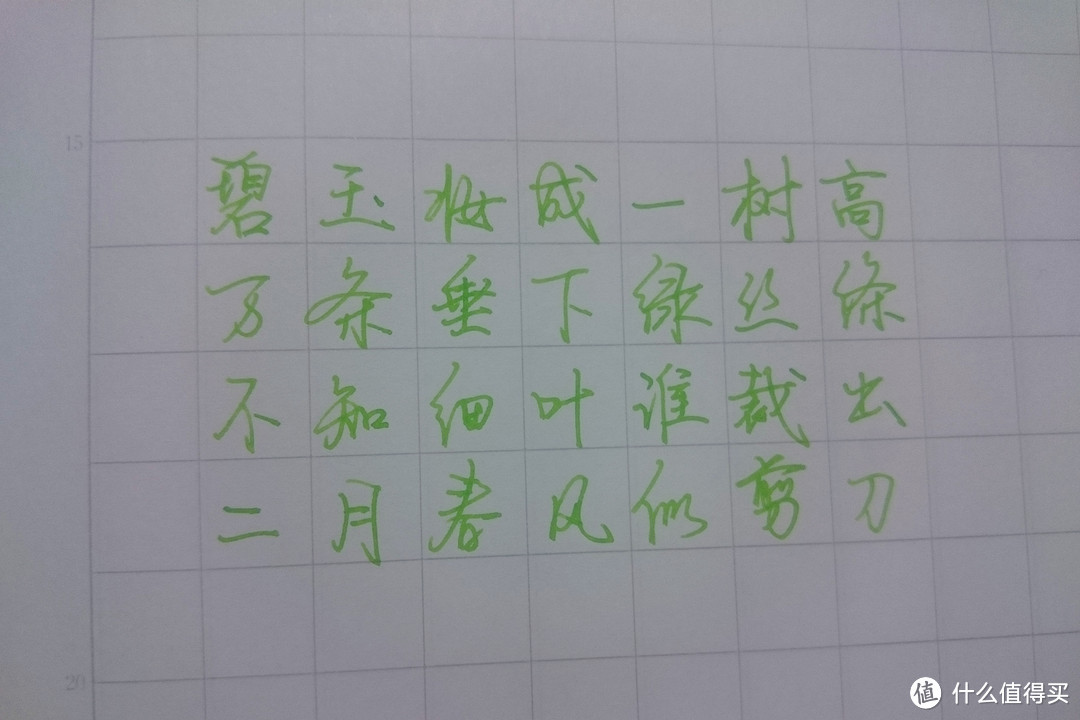 15
碧玉妆成一树高
万条垂下绿丝绦
不知细叶谁裁出
二月春风似剪刀
20
值 什么值得买